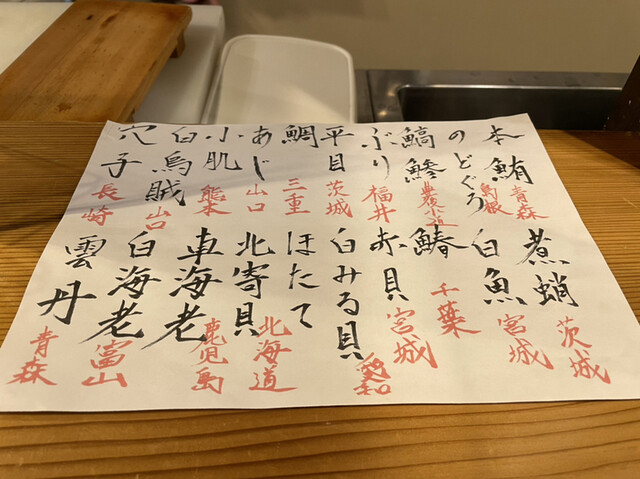 本鮪 青森
のどぐろ 島根
縞鯵 豊後水道
ぶり 福井
平目 茨城
鯛 三重
あじ 山口
小肌 熊本
白烏賊 山口
穴子 長崎
煮蛸 茨城
白魚 宮城
鰆 千葉
赤貝 宮城
白みる貝 愛知
ほたて
北寄貝 北海道
車海老 鹿児島
白海老 富山
雲丹 青森